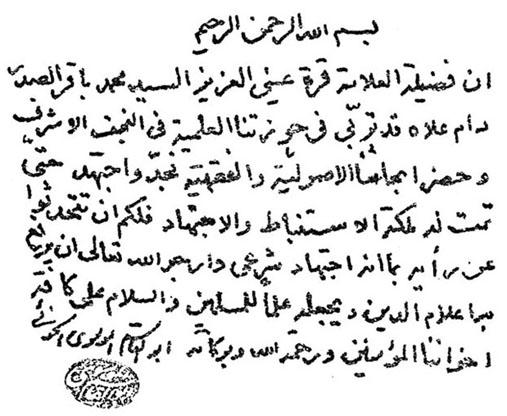 بسم الله الرحمن الرحيم
ان فضيلة العلامة قرة عيني العزيز السيد محمد باقر الصدر
دام علاه قد تربّى في حوزتنا العلمية في النجف الاشرف
وحضر ابحاثنا الاصولية والفقهية فجدّ واجتهد حتّى
تمت له ملكة الاستنباط والاجتهاد فلكم ان تتحدثوا
عن رأيه بما انه اجتهاد شرعي وارجو الله تعالى ان يرفع
به اعلام الدين ويجعله علماً للمسلمين والسلام على كافة
اخواننا المؤمنين ورحمة الله وبركاته ابو القاسم الموسوي الخوئي